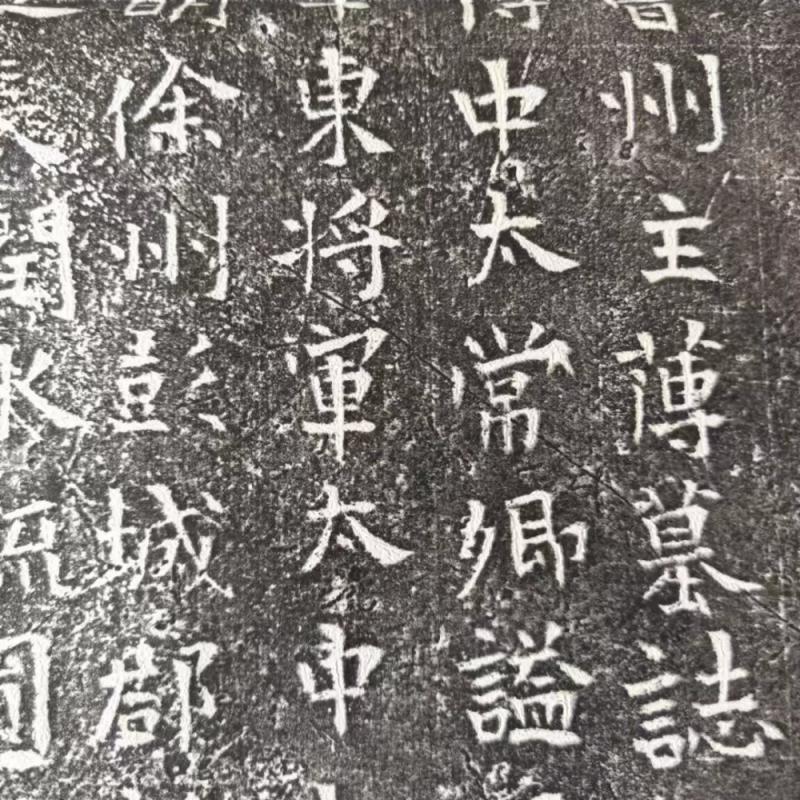 州主薄墓誌
中太常卿謚
東將軍太中
徐州彭城郡
閏